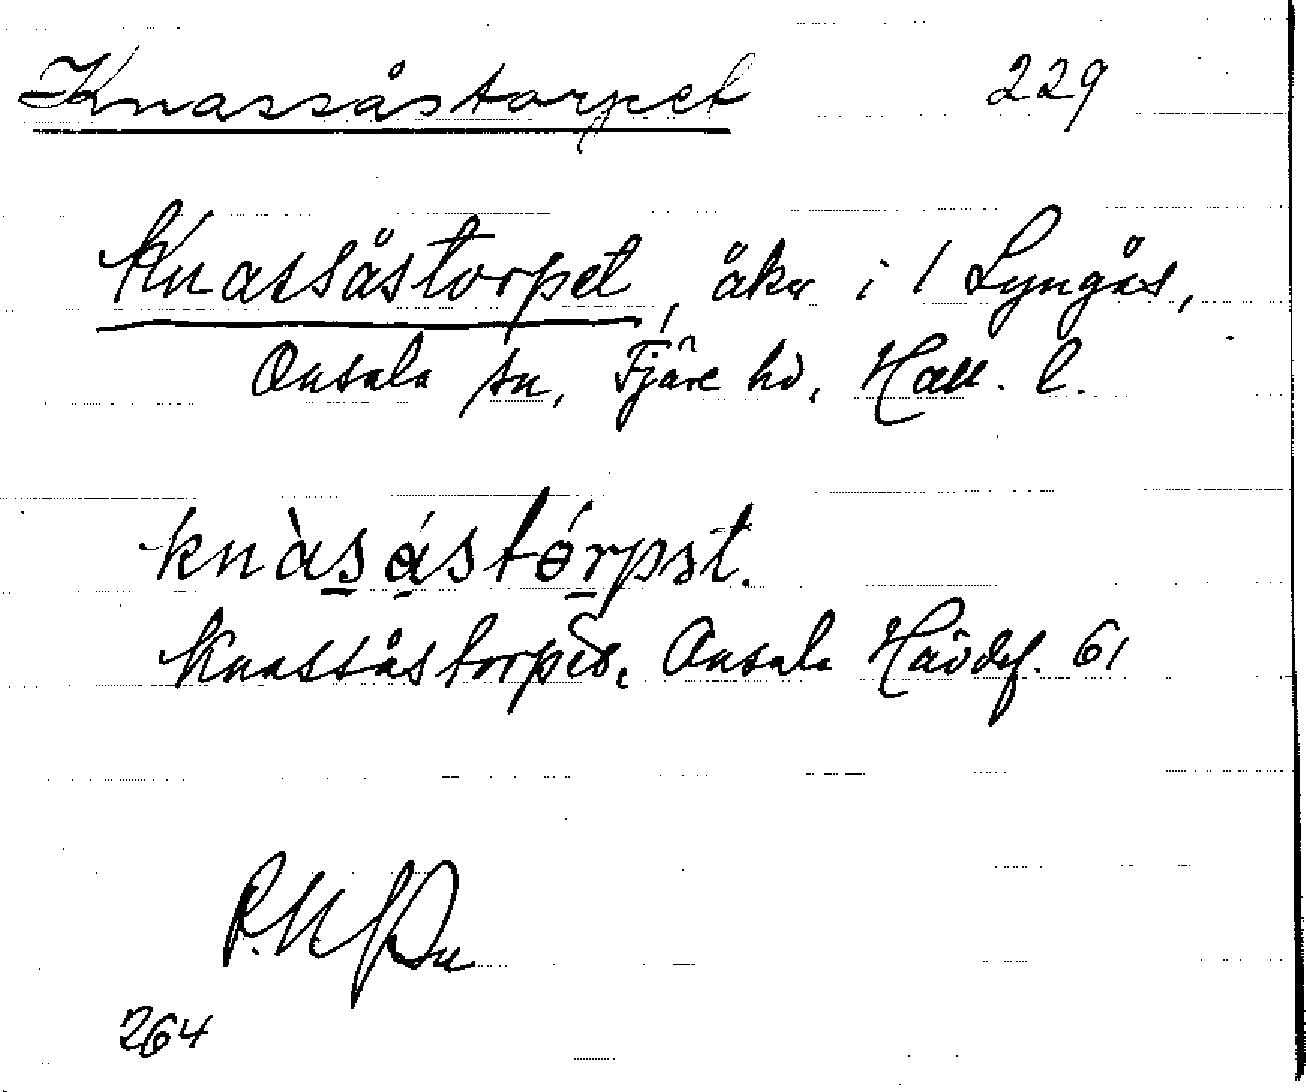 Knassåstorpet 229
Knassåstorpet, åker i 1 Lyngås,
Onsala sn, Fjäre hd, Hall. l.
knàsåstórpət.
Knassåstorpet, Onsala Hävdef. 61
264